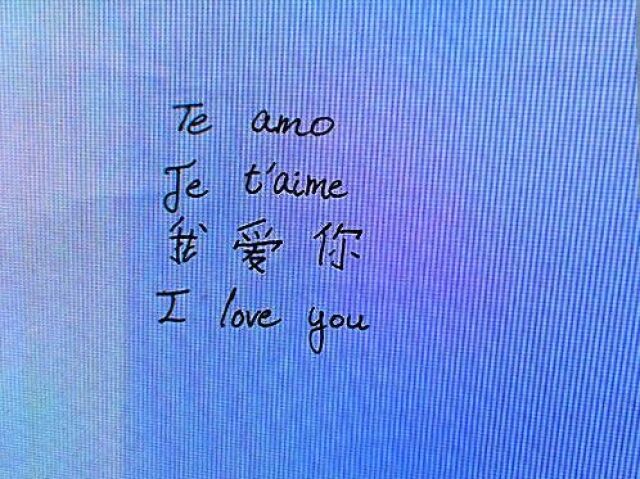 Te amo
Je t'aime
我 爱 你
I love you